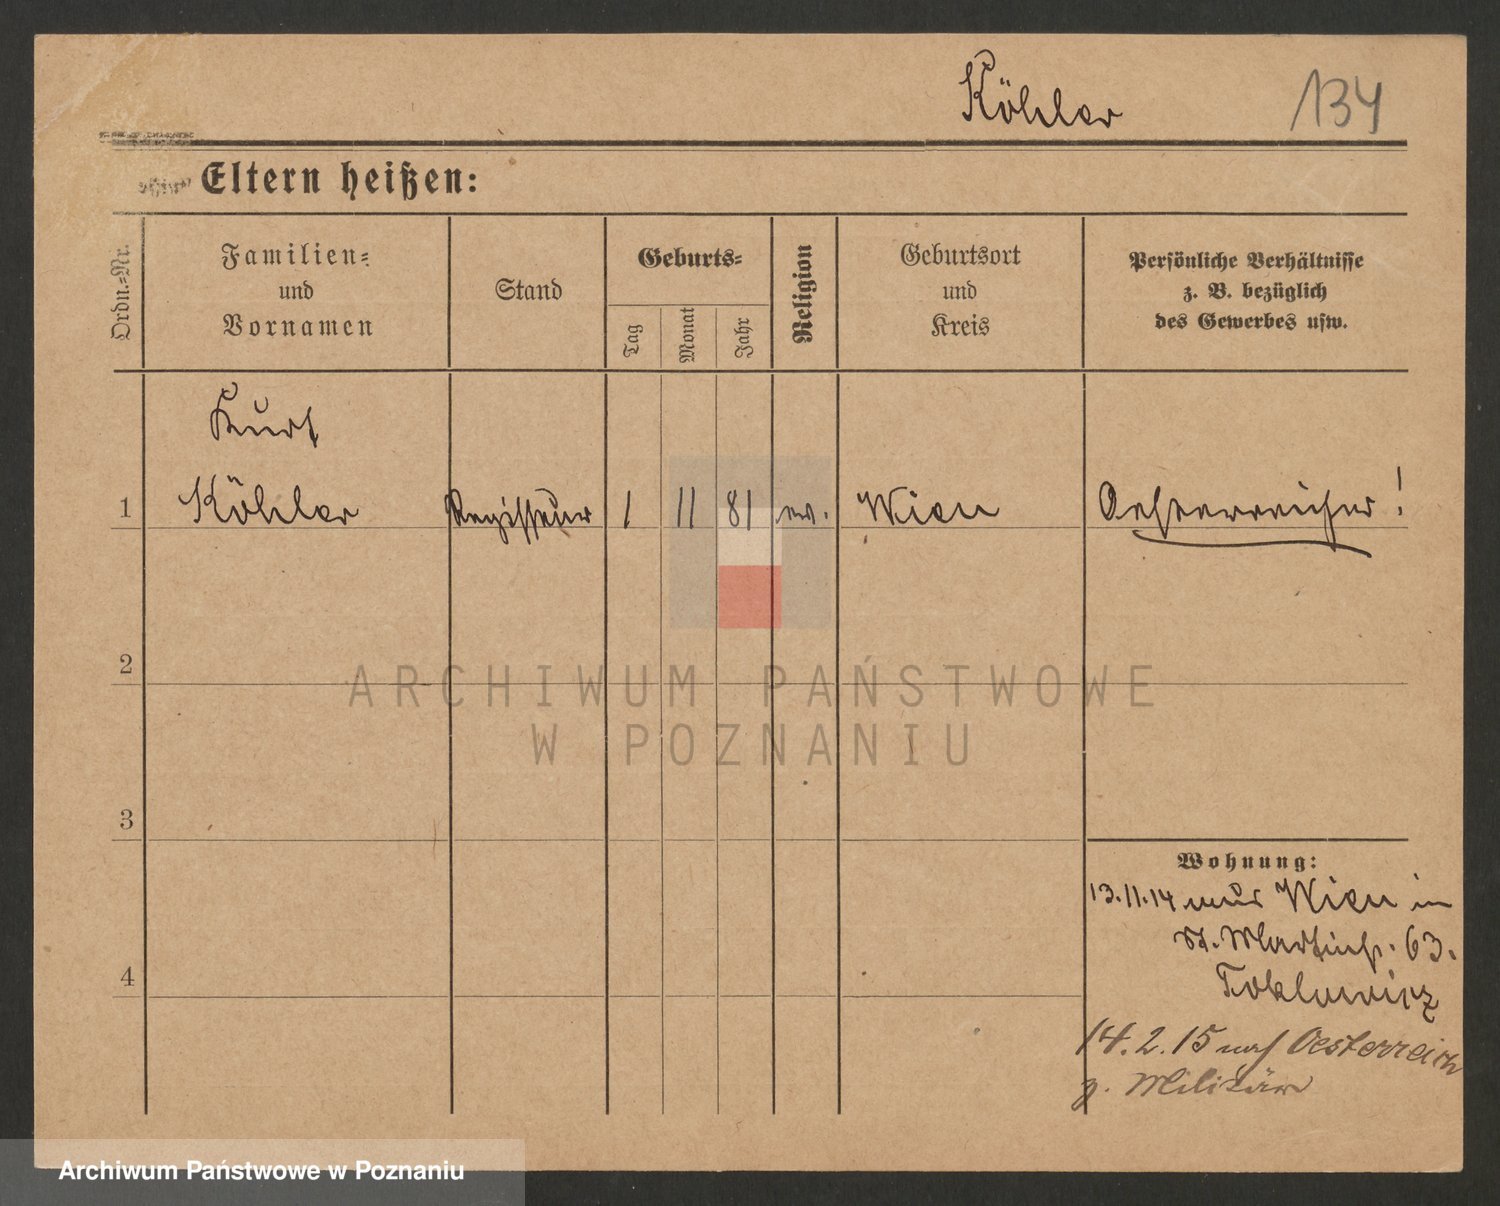 Köhler 134
Eltern heißen:
Ordn.-Nr.
Familien-
und
Vornamen
Stand
Geburts-
Tag
Monat
Jahr
Religion
Geburtsort
und
Kreis
Persönliche Verhältnisse
z. B. bezüglich
des Gewerbes usw.
Kurt
1 Köhler Regisseur 1 11 81 ev. Wien Oesterreicher!
2
ARCHIWUM PAŃSTWOWE
W POZNANIU
3
Wohnung:
13.11.14 aus Wien in
St. Martinstr. 63.
4
14.2.15 nach Oesterreich
z. Militär
Archiwum Państwowe w Poznaniu